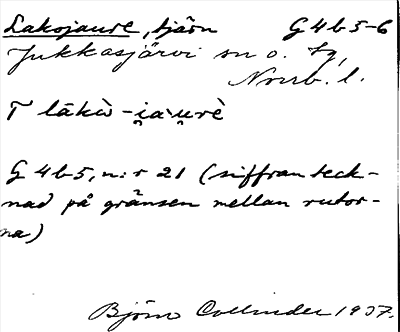 Lakojaure, tjärn G4b5-6
Jukkasjärvi sn o. tg,
Norrb. l.
T lākὼ-i̯a`u̯rè
G 4b5, n:r 21 (siffran teck-
nad på gränsen mellan rutor-
na)
Björn Collinder 1937.